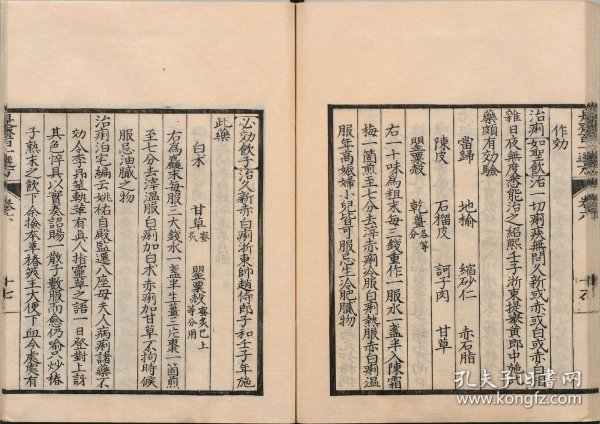 作効
治痢如聖飲治一切痢疾無問久新或赤或白或赤白相
雜日夜無度悉能治之紹熈壬子浙東提舉黃郎中施此
藥頗有効驗
當歸 地榆 縮砂仁 赤石脂
陳皮 石榴皮 訶子肉 甘草
罌粟殻 乾薑各等分
右一十味為粗末每三錢重作一服水一盞半入陳霜
梅一箇煎至七分去滓赤痢冷服白痢熱服赤白痢溫
服年高娠婦小兒皆可服忌生冷肥膩物
必効飲子治久新赤白痢浙東帥趙侍郎子和壬子年施
此藥
白朮 甘草炙 罌粟殻蜜炙已上等分用
右為麄末每服三大錢水一盞半生薑三片棗一箇煎
至七分去滓溫服白痢加白朮赤痢加甘草不拘時候
服忌油膩之物
治痢泊宅編云姚祐自殿監遷八座母夫人病痢諸藥不
効令李昻筮軌革有真人指靈草之語一日登對上訝
其色悴具以實奏詔賜一散子數服而愈仍喻只炒椿
子熟末之飲下余撿本草椿莢主大便下血今處處有
孔夫子旧书网
www.kongfz.com